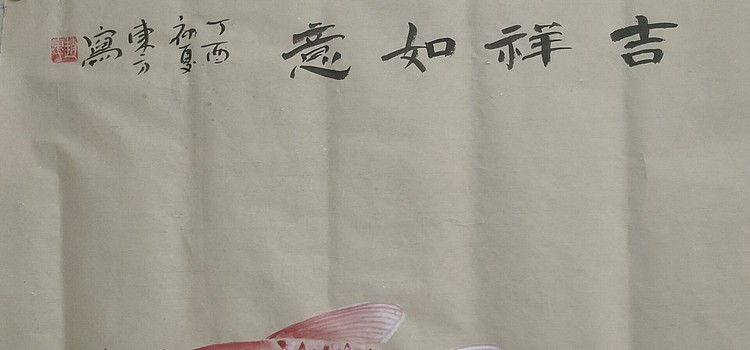 吉祥如意
丁酉
初夏
東方
寫